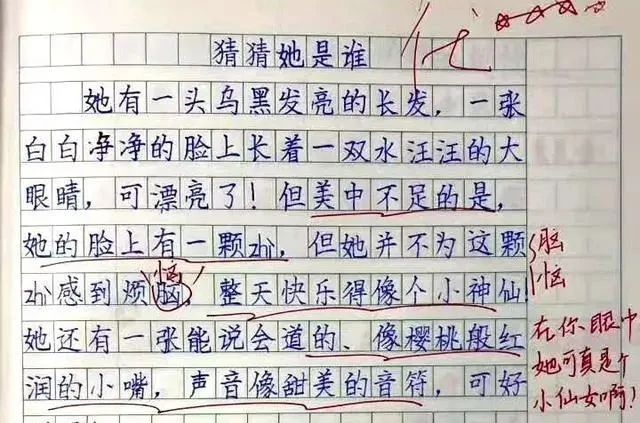 猜猜她是谁
优
她有一头乌黑发亮的长发，一张
白白净净的脸上长着一双水汪汪的大
眼睛，可漂亮了！但美中不足的是，
她的脸上有一颗zhì，但她并不为这颗
脑
恼
zhì感到烦脑，整天快乐得像个小神仙！
恼
她还有一张能说会道的、像樱桃般红
润的小嘴，声音像甜美的音符，可好
在你眼中
她可真是个
小仙女啊！